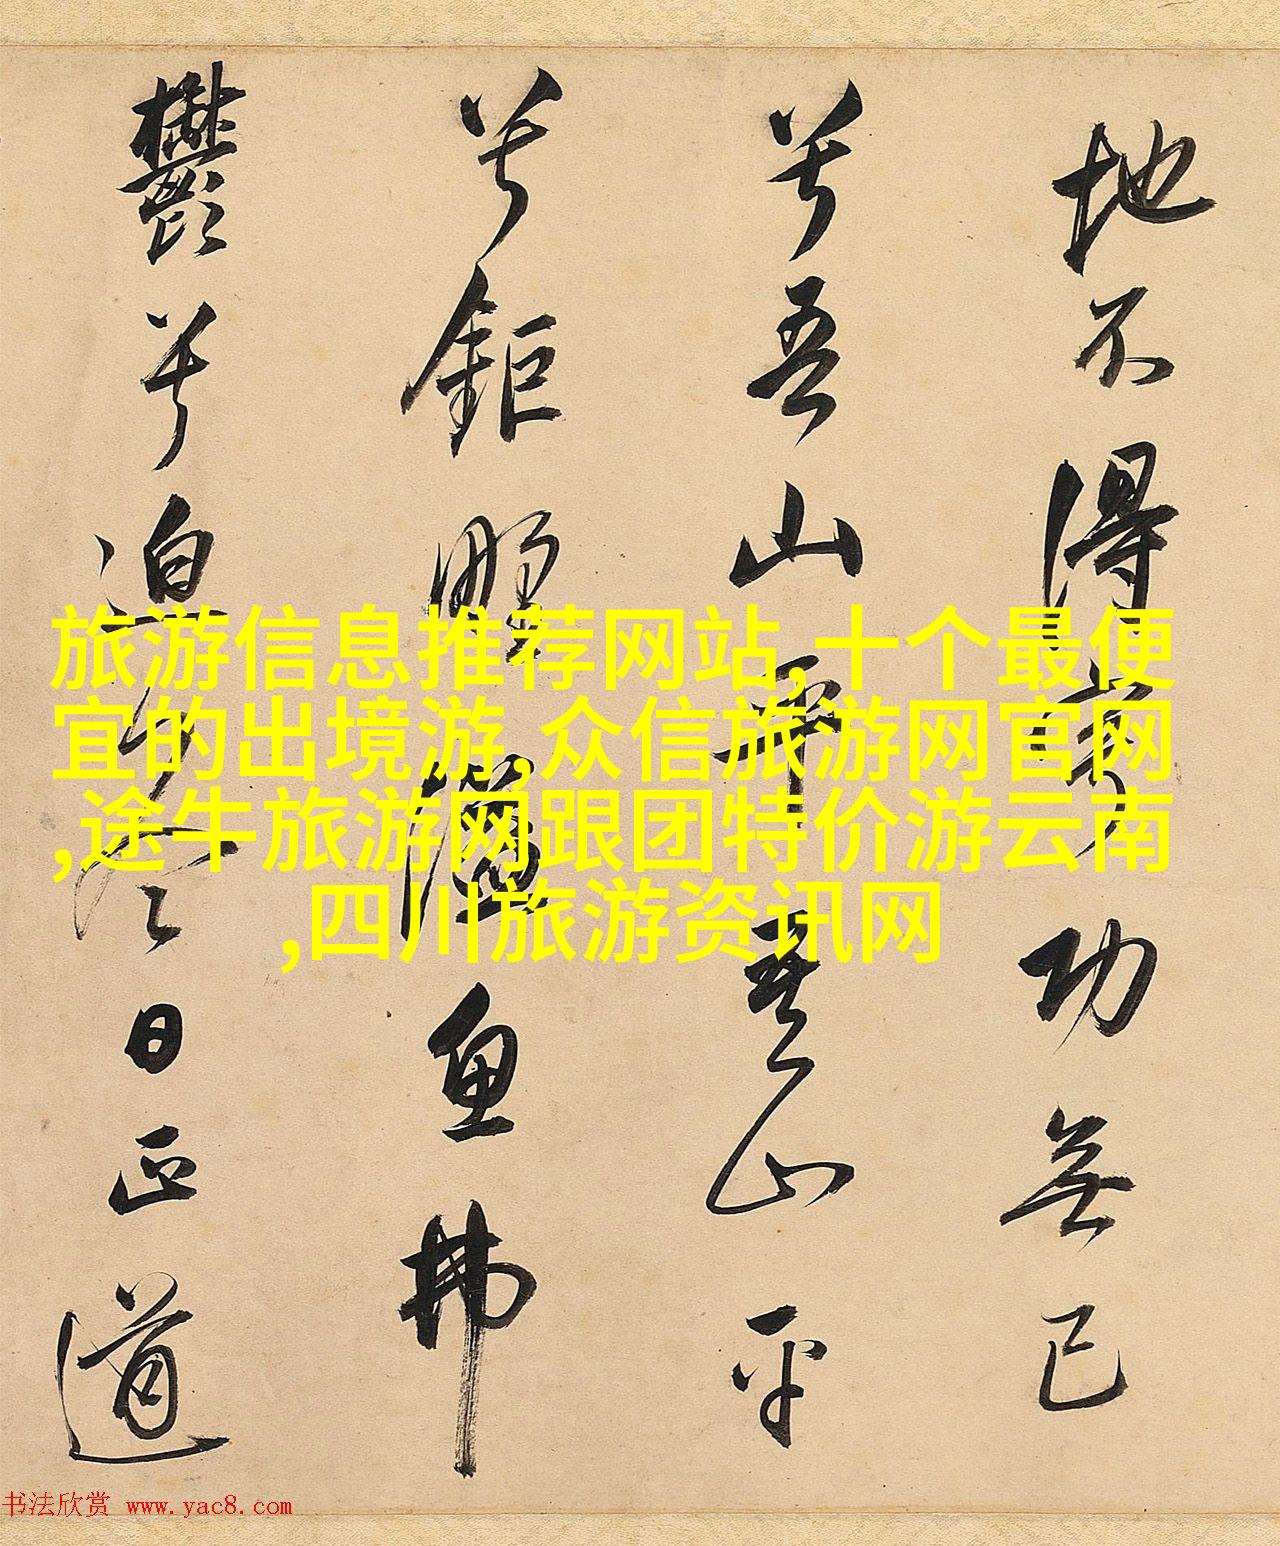 地不得寧功無已
兮吾山平吾山平
兮鉅野溢魚拂
鬱兮迫冬日正道
旅游信息推荐网站,十个最便
宜的出境游,众信旅游网官网
,途牛旅游网跟团特价游云南
,四川旅游资讯网
书法欣赏 www.yac8.com